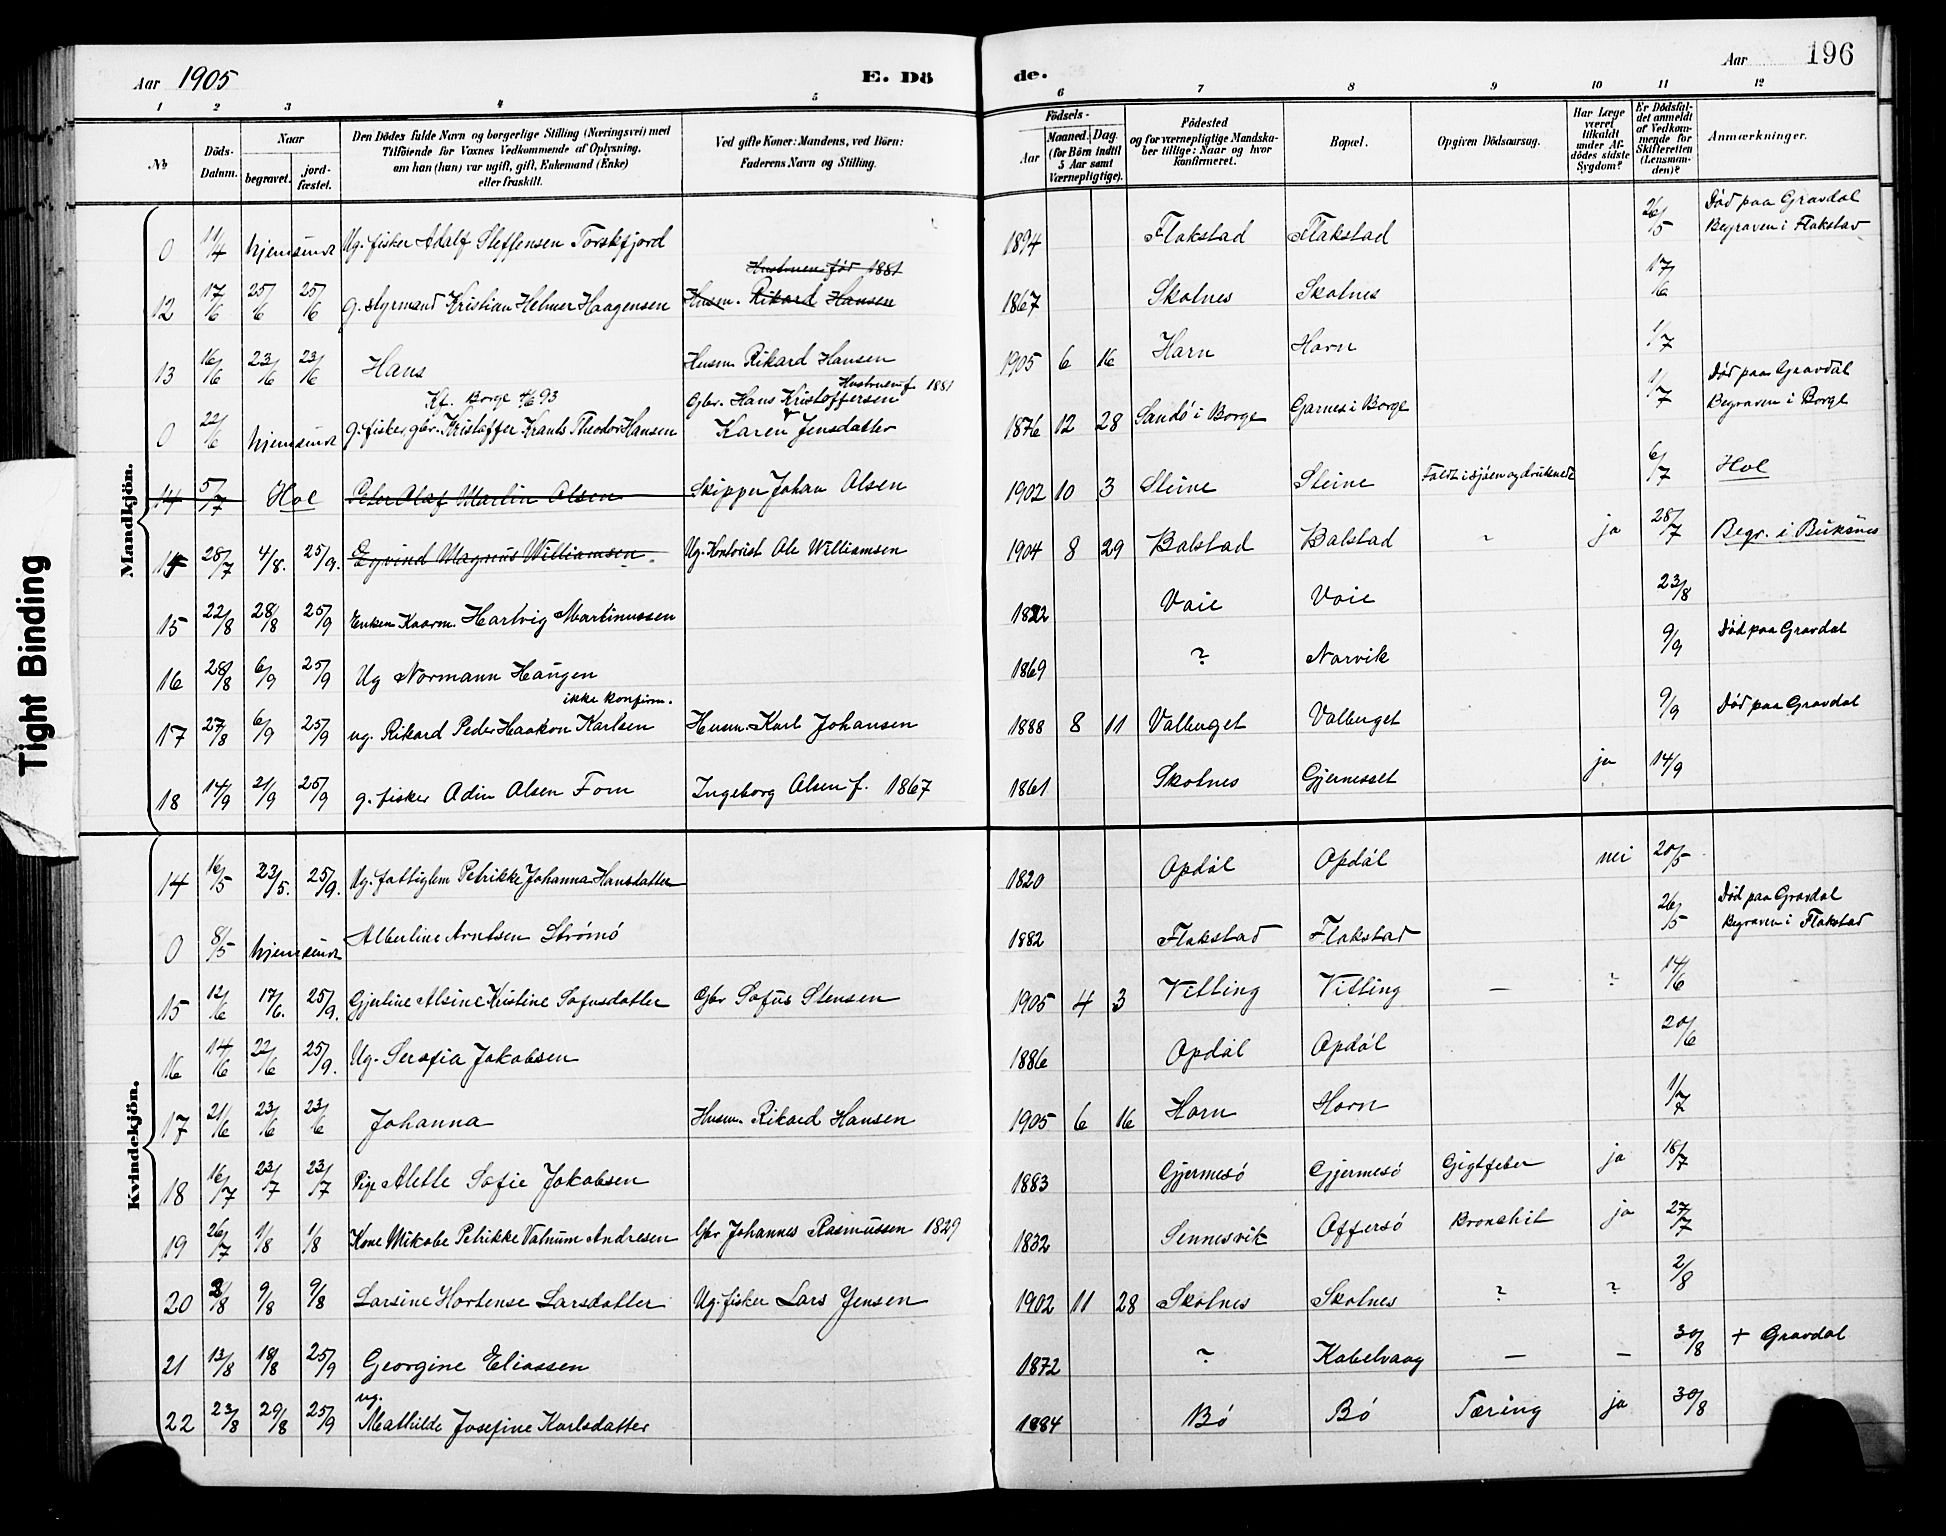 Aar 1905
E. Dö de.
Aar 196
1 2 3 4 5 6 7 8 9 10 11 12
No
Döds-Datum.
Naar
begravet.
jord-fæstet.
Den Dödes fulde Navn og borgerlige Stilling (Næringsvei) med
Tilföiende for Voxnes Vedkommende af Oplysning,
om han (han) var ugift, gift, Enkemand (Enke)
eller fraskilt.
Ved gifte Koner: Mandens, ved Börn:
Faderens Navn og Stilling.
Födsels-
Aar
Maaned. Dag.
(for Börn indtil
5 Aar samt
Værnepligtige).
Födested
og for værnepligtige Mandska-
ber tillige: Naar og hvor
konfirmeret.
Bopæl.
Opgiven Dödsaarsag.
Har Læge
været
tilkaldt
under Af-
dödes sidste
Sygdom?
Er Dödsfal-
det anmeldt
af Vedkom-
mende for
Skifteretten
(Lensman-
den)?
Anmærkninger.
Mandkjön.
0 11/4 hjemsendt Ug. fisker Adolf Steffensen Torskfjord 1894 Flakstad Flakstad 26/5 Död paa Gravdal
Begraven i Flakstad
Hustruen föd 1881
12 17/6 25/6 25/6 g. styrmand Kristian Helmer Haagensen Husm. Rikard Hansen 1867 Skolnes Skolnes 17/6
13 16/6 23/6 23/6 Hans Husm. Rikard Hansen 1905 6 16 Horn Horn 1/7
Hustruen f. 1881
Kf. Borge 4/6 93 Gbr. Hans Kristoffersen Död paa Gravdal
0 22/6 hjemsendt g. fisker, gbr. Kristoffer Krants Theodor Hansen Karen Jensdatter 1876 12 28 Sandö i Borge Garnes i Borge 1/7 Begraven i Borge
14 5/7 Hol Peter Olaf Martin Olsen Skipper Johan Olsen 1902 10 3 Steine Steine Faldt i sjöen og druknede 6/7 Hol
14 28/7 4/8. 25/9. Eyvind Magnus Williamsen Ug. Kontorist Ole Williamsen 1904 8 29 Balstad Balstad - ja 28/7 Begr. i Buksnes
15 22/8 28/8 25/9 Enkem. Kaarm. Hartvig Martinussen 1822 Voie Voie 23/8
16 28/8 6/9 25/9 Ug Normann Haugen 1869 ? Narvik 9/9 Död paa Gravdal
ikke konfirm.
17 27/8 6/9 25/9 ug. Rikard Peder Haakon Karlsen Husm. Karl Johansen 1888 8 11 Valberget Valberget 9/9 Död paa Gravdal
18 14/9 21/9 25/9 g. fisker Odin Olsen Forn Ingeborg Olsen f. 1867 1861 Skolnes Gjerneset ja 14/9
Kvindekjön.
14 16/5 23/5. 25/9. Ug. fattiglem Petrikke Johanna Hansdatter 1820 Opdöl Opdöl nei 20/5
0 8/5 hjemsendt Albertine Arntsen Strömö 1882 Flakstad Flakstad 26/5 Död paa Gravdal
Begraven i Flakstad
15 12/6 17/6. 25/9. Gjertine Alsine Kristine Sofusdatter Gbr Sofus Stensen 1905 4 3 Vetting Vetting — ? 14/6
16 14/6 22/6 25/9. Ug. Serafia Jakobsen 1886 Opdöl Opdöl 20/6
17 21/6 23/6 23/6 Johanna Husm. Rikard Hansen 1905 6 16 Horn Horn 1/7
18 16/7 23/7 23/7 Pige Alette Sofie Jakobsen 1883 Gjermesö Gjermesö Gigtfeber ja 18/7
19 26/7 1/8 1/8 Kone Mikobe Petrikke Valnum Andresen Gbr Johannes Rasmussen 1829 1832 Sennesvik Offersö Bronchit ja 27/7
20 2/8 9/8 9/8 Larsine Hortense Larsdatter Ug. fisker Lars Jensen 1902 11 28 Skolnes Skolnes ? ? 2/8
21 13/8 18/8 25/9 Georgine Eliassen 1872 ? Kabelvaag — — 30/8 + Gravdal
22 23/8 29/8 25/9 ug. Mathilde Josefine Karlsdatter 1884 Bö Bö Tæring ja 30/8
Tight Binding